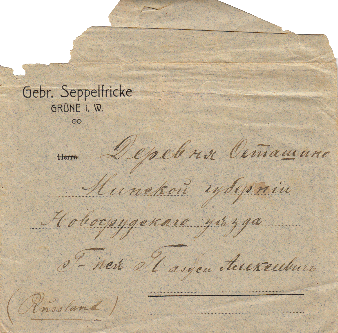 Gebr. Seppelfricke
GRÜNE i. W.
Herrn
Деревня Осташино
Минской губернiи
Новогрудского уезда
Г-жея
(Russland)